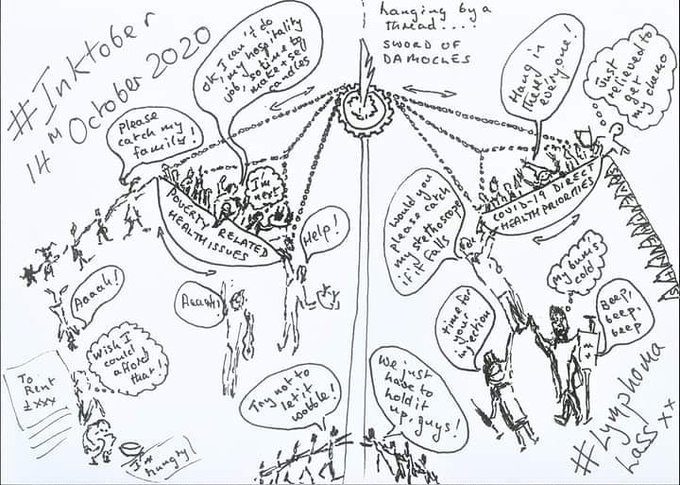 #Inktober
14th October 2020
hanging by a
thread....
SWORD OF
DAMOCLES
OK, I can't do
my hospitality
job, so time to
make + sell
candles
Hang in
there
everyone!
Just
relieved to
get
my chemo
Please
catch my
family!
I'm
next
POVERTY RELATED
HEALTH ISSUES
COVID-19 DIRECT
HEALTH PRIORITIES
Help!
Would you
please catch
my stethoscope
if it falls
My bum's
cold
Aaaah!
Aaaah!
time for
your
injection
Beep,
beep,
beep
Wish I
could
afford
that!
To
Rent
£xxx
I'm
hungry!
Try not to
let it
wobble!
We just
have to
hold it
up, guys!
#Lymphoma
Lass xx